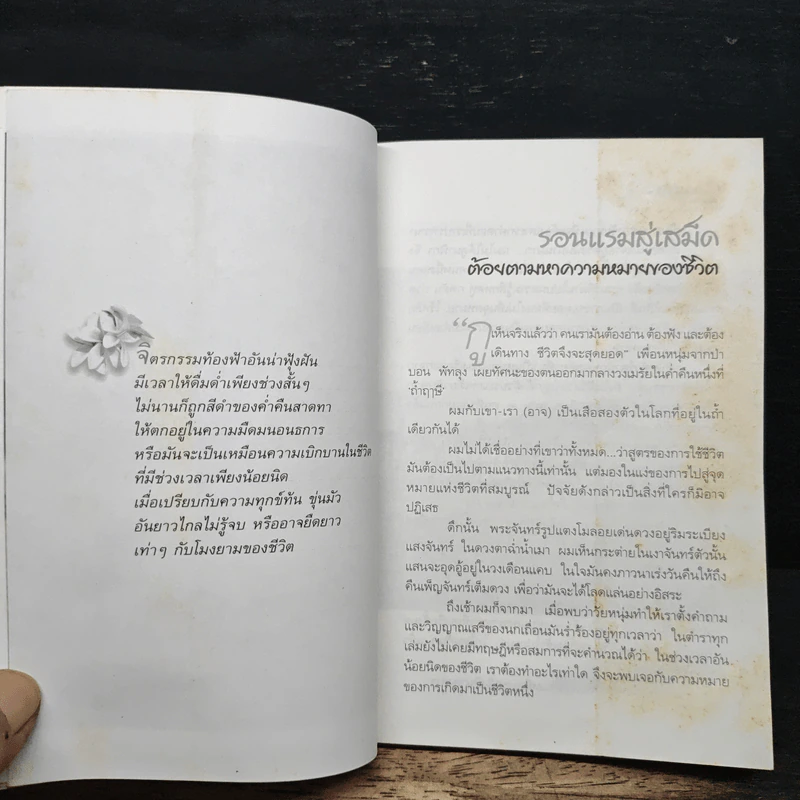 จิตรกรรมท้องฟ้าอันน่าฟุ้งฝัน
มีเวลาให้ดื่มด่ำเพียงช่วงสั้นๆ
ไม่นานก็ถูกสีดำของค่ำคืนสาดทา
ให้ตกอยู่ในความมืดมนอนธการ
หรือมันจะเป็นเหมือนความเบิกบานในชีวิต
ที่มีช่วงเวลาเพียงน้อยนิด
เมื่อเปรียบกับความทุกข์ท้น ขุ่นมัว
อันยาวไกลไม่รู้จบ หรืออาจยืดยาว
เท่าๆ กับโมงยามของชีวิต
รอนแรมสู่เสม็ด
ต้อยตามหาความหมายของชีวิต
“กูเห็นจริงแล้วว่า คนเรามันต้องอ่าน ต้องฟัง และต้อง
เดินทาง ชีวิตจึงจะสุดยอด” เพื่อนหนุ่มจากป่า
บอน พัทลุง เผยทัศนะของตนออกมากลางวงเมรัยในค่ำคืนหนึ่งที่
‘ถ้ำฤๅษี’
ผมกับเขา-เรา (อาจ) เป็นเสือสองตัวในโลกที่อยู่ในถ้ำ
เดียวกันได้
ผมไม่ได้เชื่ออย่างที่เขาว่าทั้งหมด...ว่าสูตรของการใช้ชีวิต
มันต้องเป็นไปตามแนวทางนี้เท่านั้น แต่มองในแง่ของการไปสู่จุด
หมายแห่งชีวิตที่สมบูรณ์ ปัจจัยดังกล่าวเป็นสิ่งที่ใครก็มิอาจ
ปฏิเสธ
ดึกนั้น พระจันทร์รูปแตงโมลอยเด่นดวงอยู่ริมระเบียง
แสงจันทร์ ในดวงตาฉ่ำน้ำเมา ผมเห็นกระต่ายในเงาจันทร์ตัวนั้น
แสนจะอุดอู้อยู่ในวงเดือนแคบ ในใจมันคงภาวนาเร่งวันคืนให้ถึง
คืนเพ็ญจันทร์เต็มดวง เพื่อว่ามันจะได้โลดแล่นอย่างอิสระ
ถึงเช้าผมก็จากมา เมื่อพบว่าวัยหนุ่มทำให้เราตั้งคำถาม
และวิญญาณเสรีของนกเถื่อนมันร่ำร้องอยู่ทุกเวลาว่า ในตำราทุก
เล่มยังไม่เคยมีทฤษฎีหรือสมการที่จะคำนวณได้ว่า ในช่วงเวลาอัน
น้อยนิดของชีวิต เราต้องทำอะไรเท่าใด จึงจะพบเจอกับความหมาย
ของการเกิดมาเป็นชีวิตหนึ่ง